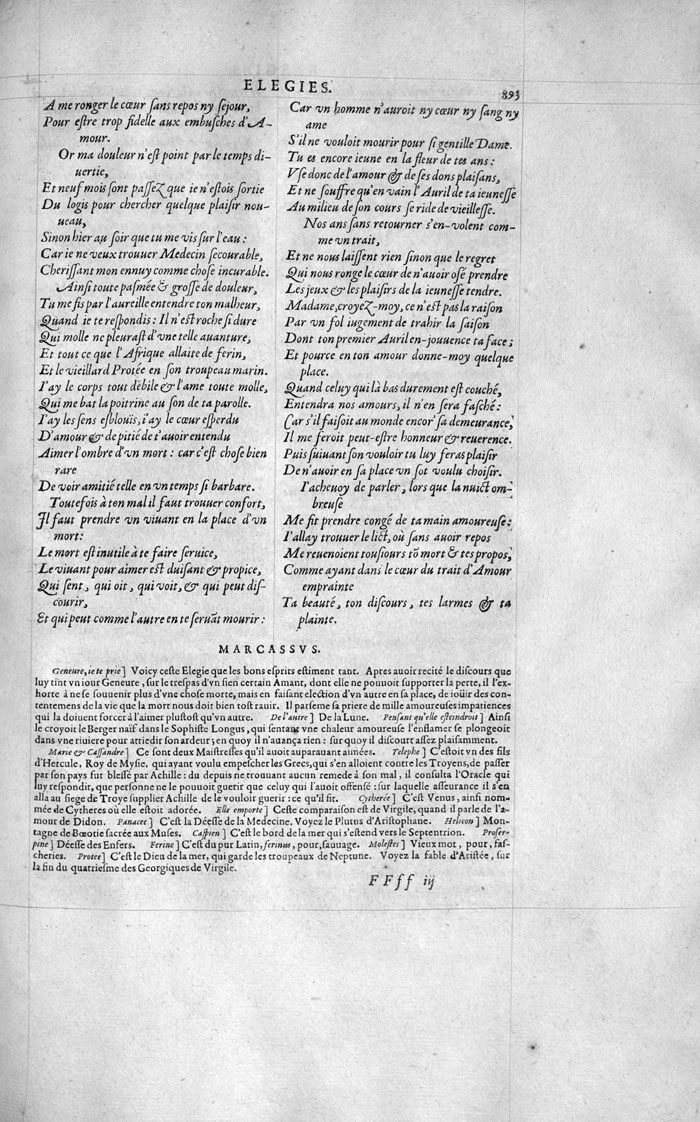 ELEGIES.
893
A me ronger le cœur ſans repos ny ſejour,
Pour eſtre trop fidelle aux embuſches d'A-
mour.
Or ma douleur n'eſt point par le temps di-
uertie,
Et neuf mois ſont paſſez que ie n'eſtois ſortie
Du logis pour chercher quelque plaiſir nou-
ueau,
Sinon hier au ſoir que tu me vis ſur l'eau :
Car ie ne veux trouuer Medecin ſecourable,
Cheriſſant mon ennuy comme choſe incurable.
Ainſi toute paſmée & groſſe de douleur,
Tu me fis par l'aureille entendre ton malheur,
Quand ie te reſpondis : Il n'eſt roche ſi dure
Qui molle ne pleuraſt d'vne telle auanture,
Et tout ce que l'Afrique allaite de ferin,
Et le vieillard Protée en ſon troupeau marin.
I'ay le corps tout debile & l'ame toute molle,
Qui me bat la poitrine au ſon de ta parolle.
I'ay les ſens eſblouïs, i'ay le cœur eſperdu
D'amour & de pitié de t'auoir entendu
Aimer l'ombre d'vn mort : car c'eſt choſe bien
rare
De voir amitié telle en vn temps ſi barbare.
Toutefois à ton mal il faut trouuer confort,
Il faut prendre vn viuant en la place d'vn
mort :
Le mort eſt inutile à te faire ſeruice,
Le viuant pour aimer eſt duiſant & propice,
Qui ſent, qui oit, qui voit, & qui peut diſ-
courir,
Et qui peut comme l'autre en te ſeruãt mourir :
Car vn homme n'auroit ny cœur ny ſang ny
ame
S'il ne vouloit mourir pour ſi gentille Dame.
Tu es encore ieune en la fleur de tes ans :
Vſe donc de l'amour & de ſes dons plaiſans,
Et ne ſouffre qu'en vain l'Auril de ta ieuneſſe
Au milieu de ſon cours ſe ride de vieilleſſe.
Nos ans ſans retourner s'en-volent com-
me vn trait,
Et ne nous laiſſent rien ſinon que le regret
Qui nous ronge le cœur de n'auoir oſé prendre
Les jeux & les plaiſirs de la ieuneſſe tendre.
Madame, croyez-moy, ce n'eſt pas la raiſon
Par vn fol iugement de trahir la ſaiſon
Dont ton premier Auril en-jouuence ta face ;
Et pource en ton amour donne-moy quelque
place.
Quand celuy qui là bas durement eſt couché,
Entendra nos amours, il n'en ſera faſché :
Car s'il faiſoit au monde encor' ſa demeurance,
Il me feroit peut-eſtre honneur & reuerence.
Puis ſuiuant ſon vouloir tu luy feras plaiſir
De n'auoir en ſa place vn ſot voulu choiſir.
I'acheuoy de parler, lors que la nuict om-
breuſe
Me fit prendre congé de ta main amoureuſe :
I'allay trouuer le lict, où ſans auoir repos
Me reuenoient touſiours tõ mort & tes propos,
Comme ayant dans le cœur du trait d'Amour
emprainte
Ta beauté, ton diſcours, tes larmes & ta
plainte.
MARCASSVS.
Geneure, ie te prie] Voicy ceſte Elegie que les bons eſprits eſtiment tant. Apres auoir recité le diſcours que
luy tint vn iour Geneure, ſur le treſpas d'vn ſien certain Amant, dont elle ne pouuoit ſupporter la perte, il l'ex-
horte à ne ſe ſouuenir plus d'vne choſe morte, mais en faiſant election d'vn autre en ſa place, de iouïr des con-
tentemens de la vie que la mort nous doit bien toſt rauir. Il parſeme ſa priere de mille amoureuſes impatiences
qui la doiuent forcer à l'aimer pluſtoſt qu'vn autre. De l'autre] De la Lune. Penſant qu'elle eſteindroit] Ainſi
le croyoit le Berger naïf dans le Sophiſte Longus, qui ſentant vne chaleur amoureuſe l'enflamer ſe plongeoit
dans vne riuiere pour attiedir ſon ardeur ; en quoy il n'auança rien : ſur quoy il diſcourt aſſez plaiſamment.
Marie & Caſſandre] Ce ſont deux Maiſtreſſes qu'il auoit auparauant aimées. Telephe] C'eſtoit vn des fils
d'Hercule, Roy de Myſie, qui ayant voulu empeſcher les Grecs, qui s'en alloient contre les Troyens, de paſſer
par ſon pays fut bleſſé par Achille : du depuis ne trouuant aucun remede à ſon mal, il conſulta l'Oracle qui
luy reſpondit, que perſonne ne le pouuoit guerir que celuy qui l'auoit offenſé : ſur laquelle aſſeurance il s'en
alla au ſiege de Troye ſupplier Achille de le vouloir guerir : ce qu'il fit. Cytherée] C'eſt Venus, ainſi nom-
mée de Cytheres où elle eſtoit adorée. Elle emporte] Ceſte comparaiſon eſt de Virgile, quand il parle de l'a-
mour de Didon. Panacée] C'eſt la Déeſſe de la Medecine. Voyez le Plutus d'Ariſtophane. Helicon] Mon-
tagne de Bœotie ſacrée aux Muſes. Caſpien] C'eſt le bord de la mer qui s'eſtend vers le Septentrion. Proſer-
pine] Déeſſe des Enfers. Ferine] C'eſt du pur Latin, ferinus, pour, ſauuage. Moleſtes] Vieux mot, pour, faſ-
cheries. Protee] C'eſt le Dieu de la mer, qui garde les troupeaux de Neptune. Voyez la fable d'Ariſtée, ſur
la fin du quatrieſme des Georgiques de Virgile.
FFff iij